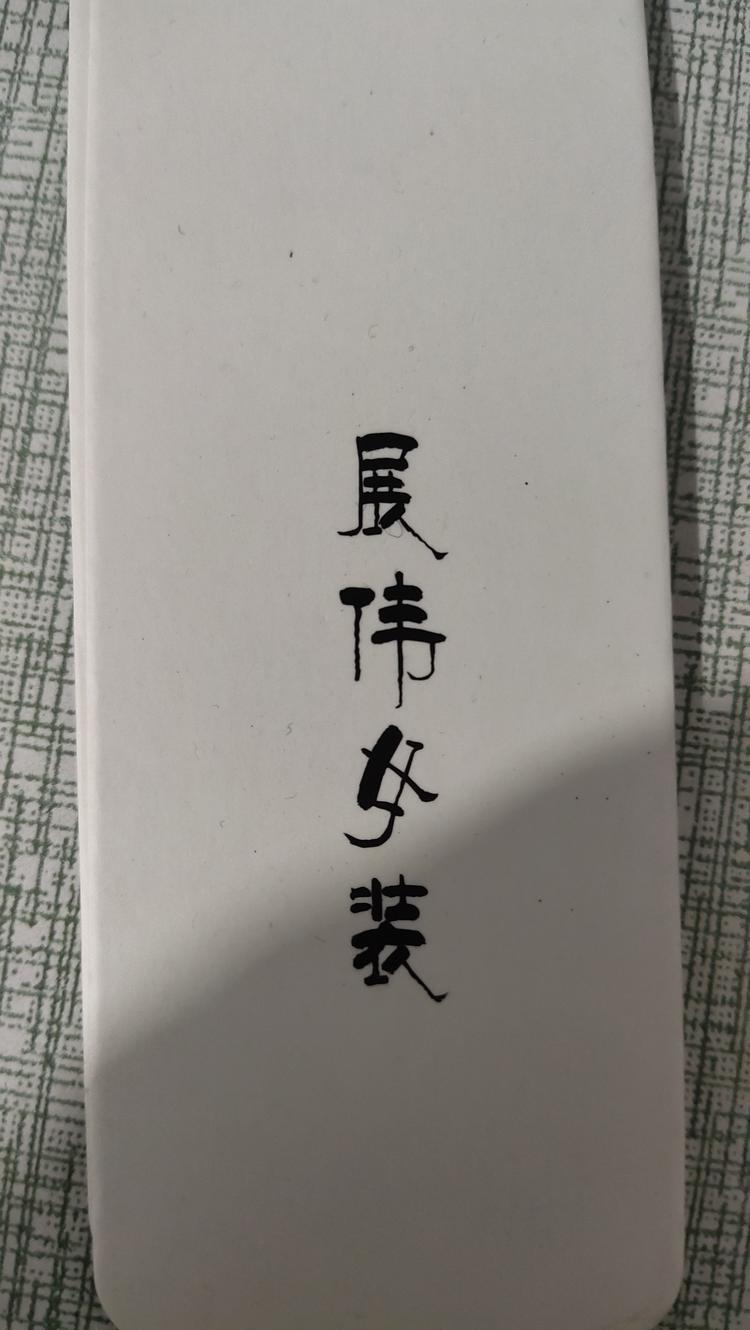 展伟女装